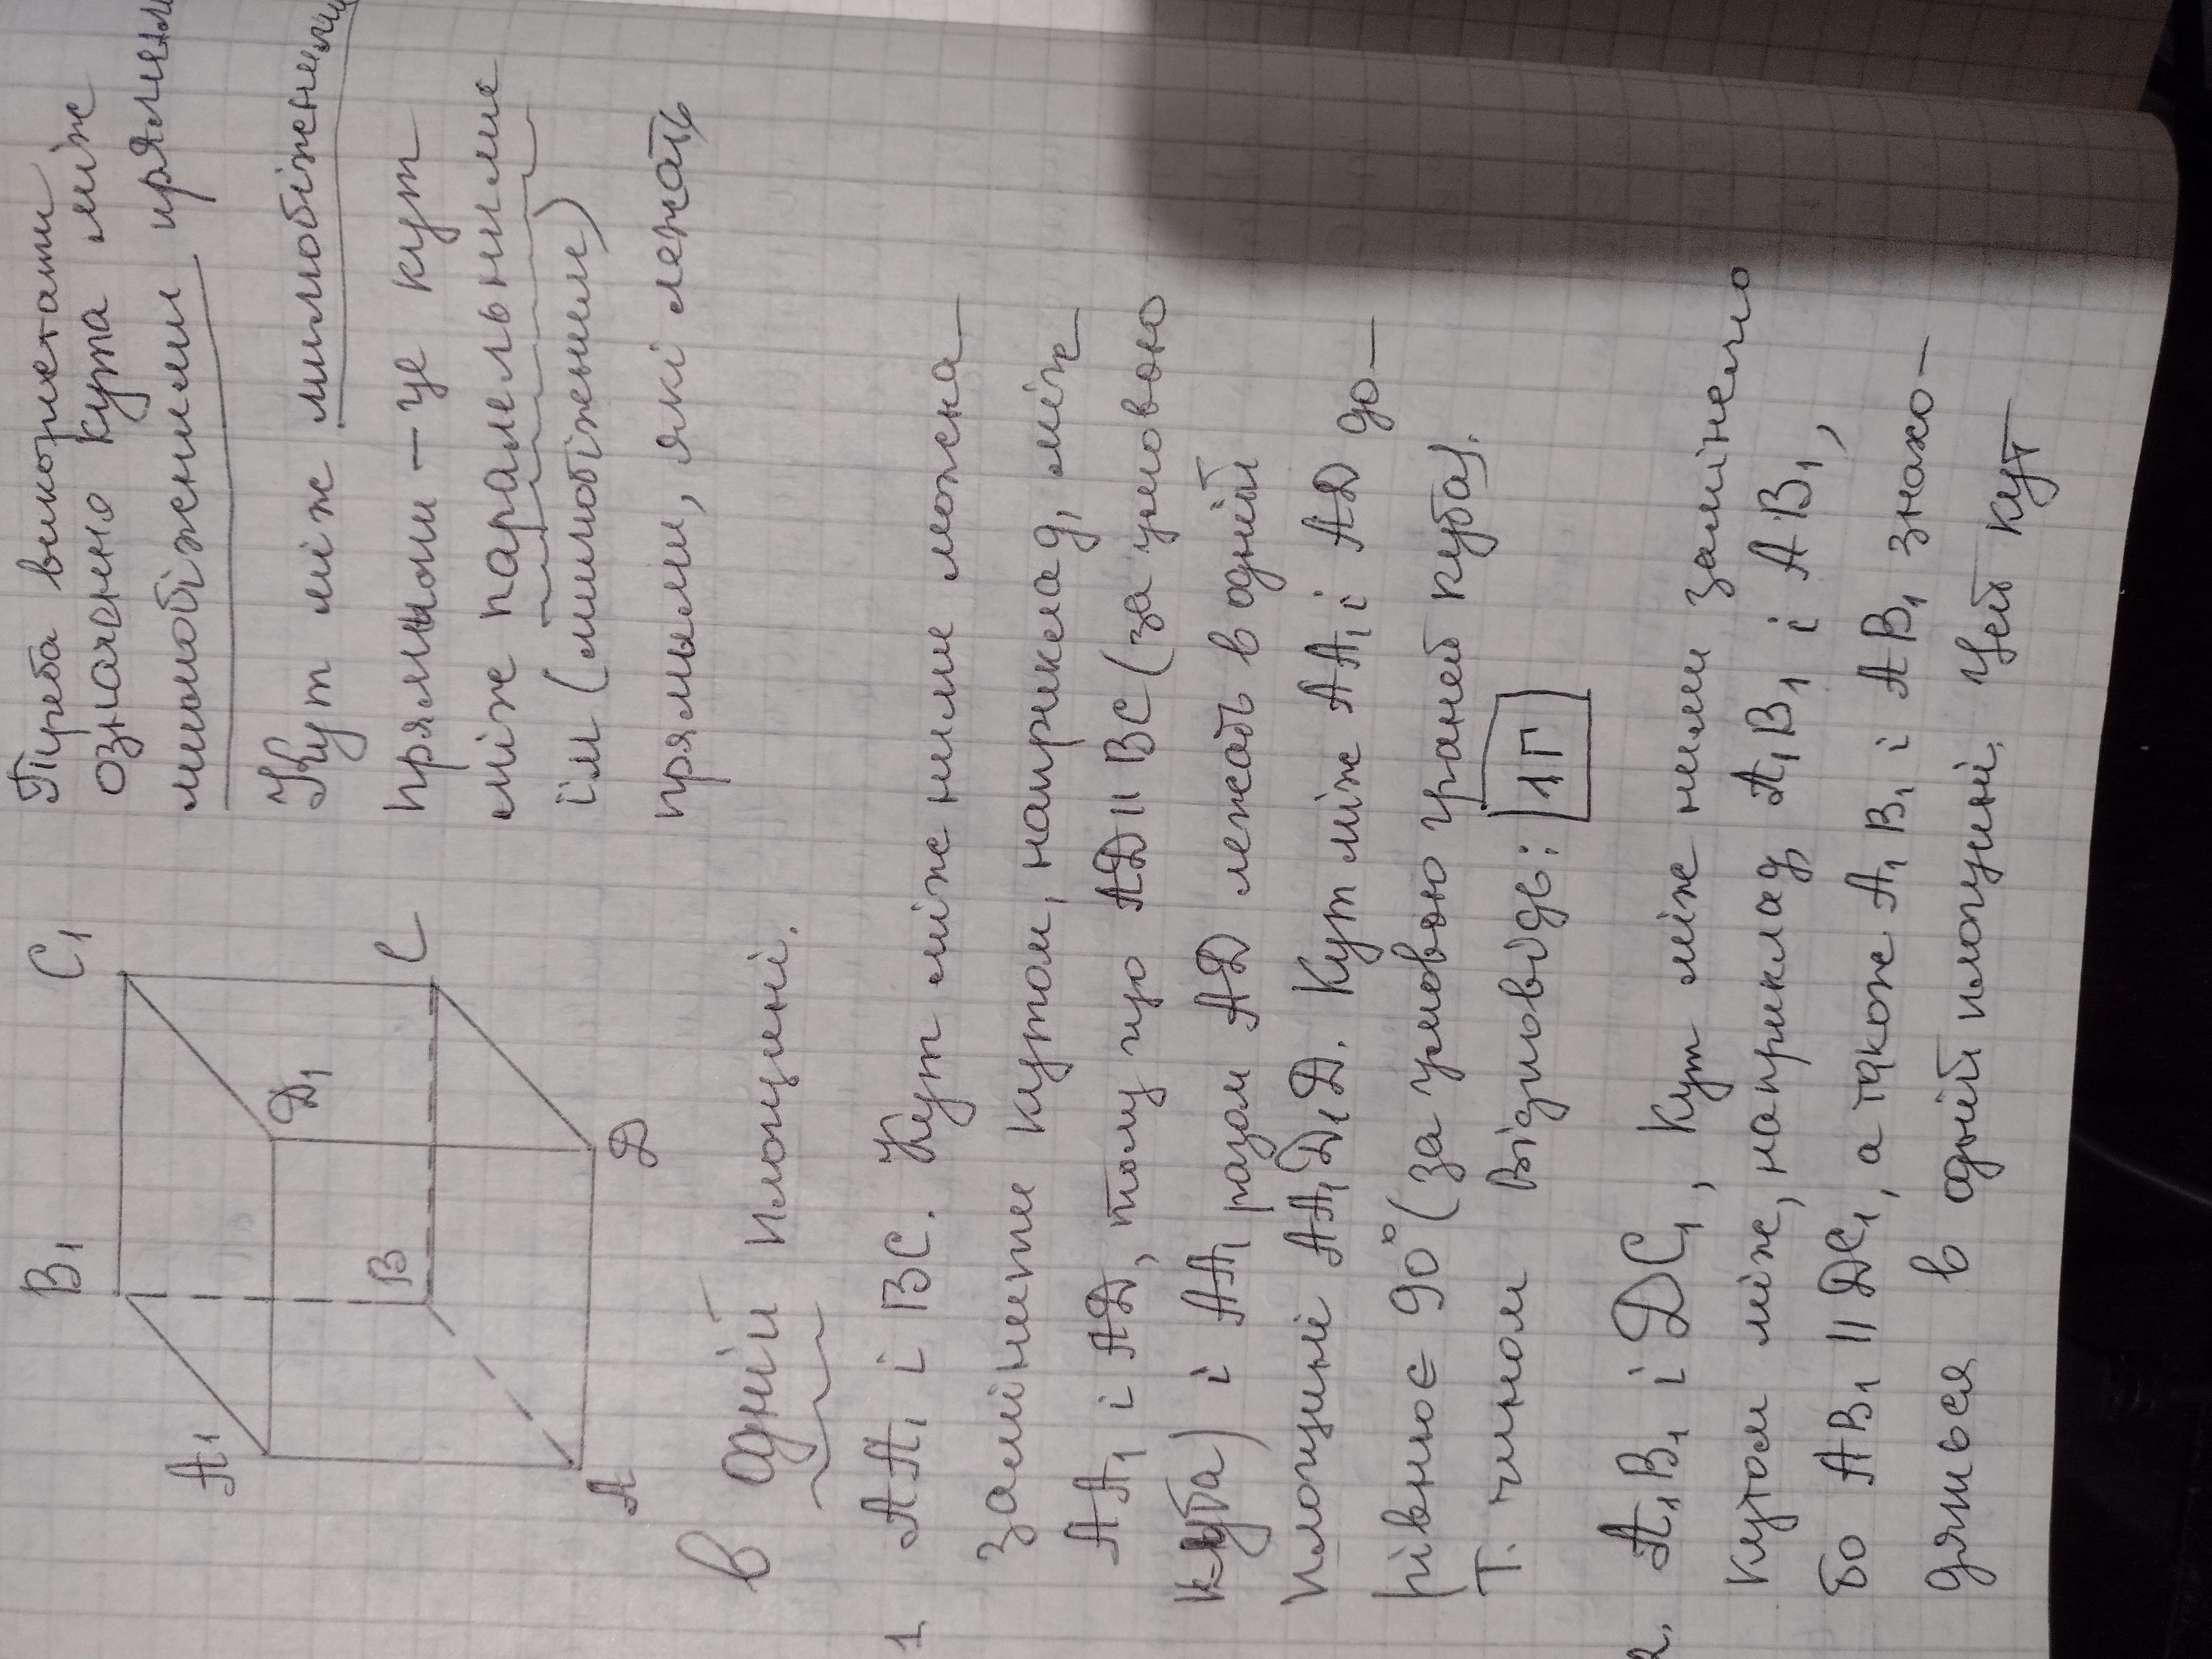 Треба використати
означення кута між
мимобіжними прямими
Кут між мимобіжними
прямыми – це кут
між паралельними
їм (мимобіжними)
прямыми, які лежать
B₁
C₁
A₁
D₁
B
C
A
D
в одній площині.
1 AA₁ і BC. Кут між ними можна
замінити кутом, наприклад, між
AA₁ і AD, тому що AD || BC (за умовою
куба) і AA₁ разом AD лежать в одній
площині AA₁D₁D. Кут між AA₁ і AD до-
рівнює 90° (за умовою граней куба).
Т. чином Відповідь: 1Г
2. A₁B₁ і DC₁, Кут між ними замінемо
кутом між, наприклад A₁B₁ і AB₁,
бо AB₁ || DC₁, а також A₁B₁ і AB₁ знахо-
дяться в одній площині. Цей кут